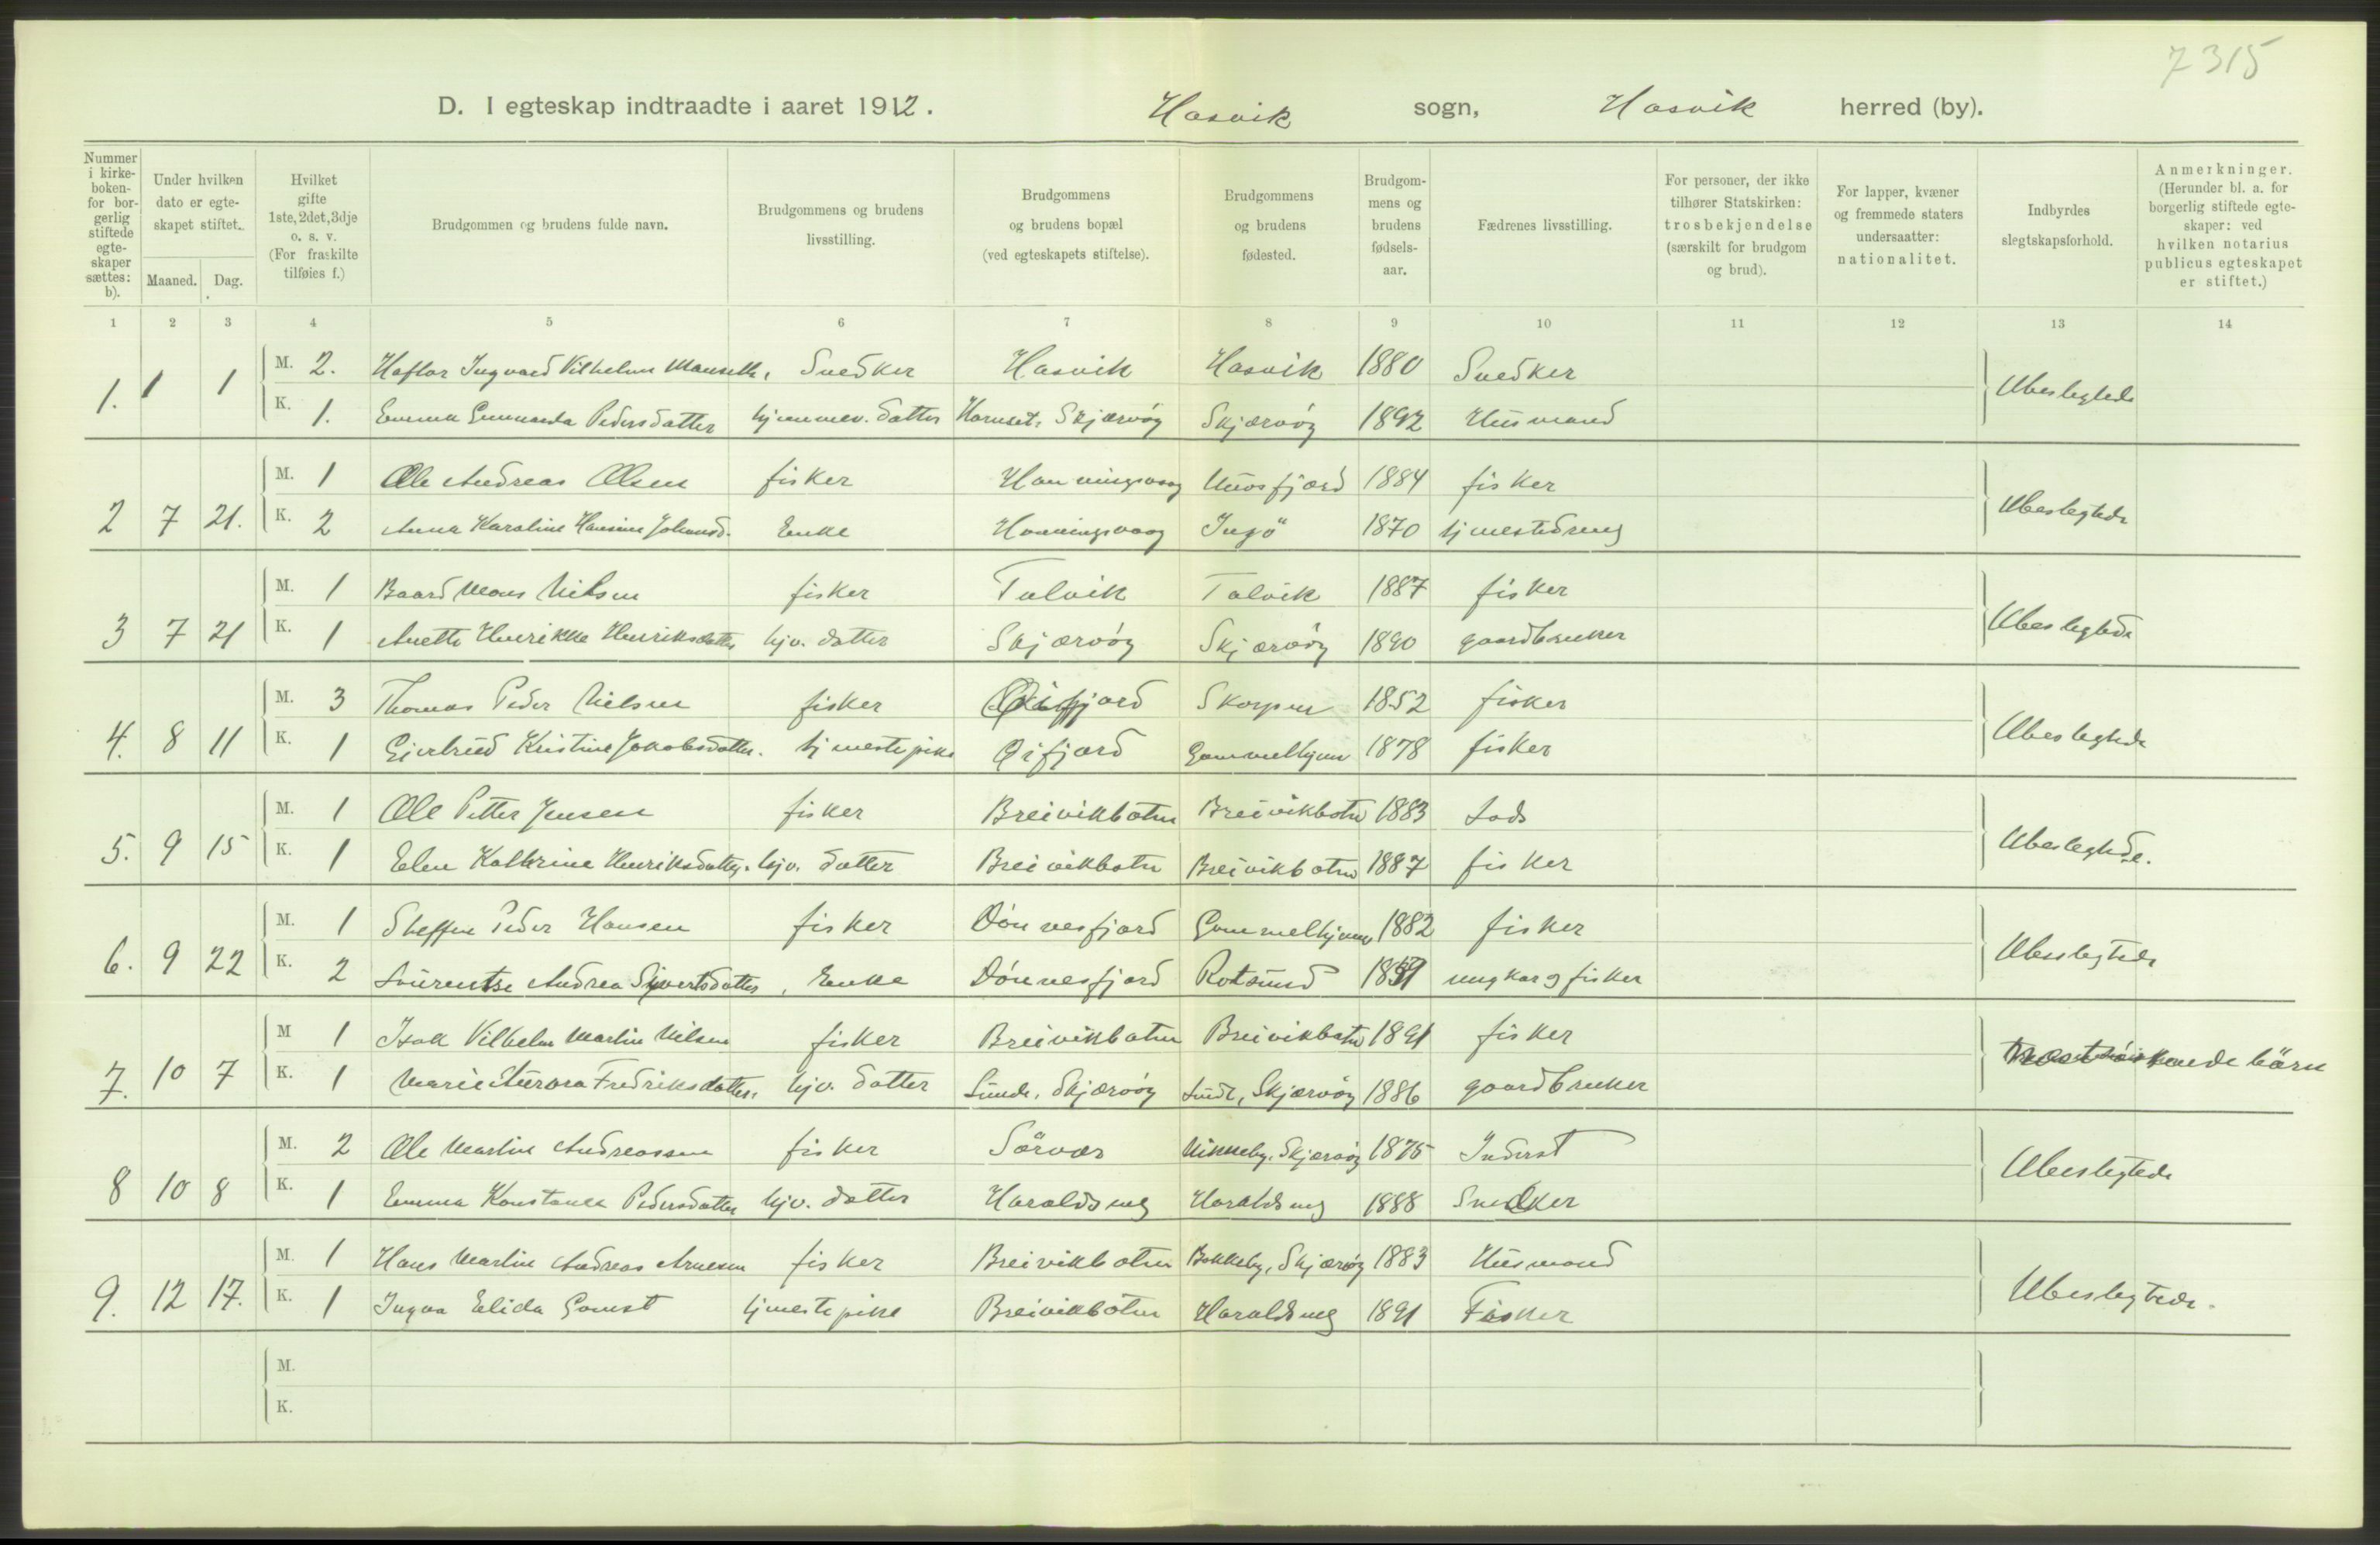 7315
D. I egteskap indtraadte i aaret 1912. Hasvik sogn, Hasvik herred (by).
Nummer i kirkeboken- for borgerlig stiftede egteskaper sættes: b).
Under hvilken dato er egteskapet stiftet. Maaned. Dag.
Hvilket gifte 1ste, 2det, 3dje o. s. v. (For fraskilte tilføies f.)
Brudgommen og brudens fulde navn.
Brudgommens og brudens livsstilling.
Brudgommens og brudens bopæl (ved egteskapets stiftelse).
Brudgommens og brudens fødested.
Brudgommens og brudens fødselsaar.
Fædrenes livsstilling.
For personer, der ikke tilhører Statskirken: trosbekjendelse (særskilt for brudgom og brud).
For lapper, kvæner og fremmede staters undersaatter: nationalitet.
Indbyrdes slegtskapsforhold.
Anmerkninger. (Herunder bl. a. for borgerlig stiftede egteskaper: ved hvilken notarius publicus egteskapet er stiftet.)
1 2 3 4 5 6 7 8 9 10 11 12 13 14
1. 1 1 M. 2. Haftor Ingvard Vilhelm Snedker Hasvik Hasvik 1880 Snedker Ubeslegtede
K. 1. Emma Gunnarda Pedersdatter hjemmev. datter Skjærvöy Skjærvöy 1892 Husmand
2 7 21. M. 1 Ole Andreas Olsen fisker Honningsvaag fisker 1884 Ubeslegtede
K. 2 Anna Karoline Hansine Johansd. Enke Honningsvaag Ingö 1870 tjenestedreng
3 7 21 M. 1 Baard Mons Nilsen fisker Talvik Talvik 1887 fisker Ubeslegtede
K. 1 Anette Henrikke Henriksdatter hjv. datter Skjærvöy Skjærvöy 1890 gaardbruker
4. 8 11 M. 3 Thomas Peder Nielsen fisker Öifjord Skorpen 1852 fisker Ubeslegtede
K. 1 Gjertrud Kristine Jakobsdatter. tjenestepike Öifjord Gammelhjem 1878 fisker
5. 9 15 M. 1 Ole Petter Jensen fisker Breivikbotn Breivikbotn 1883 Lods Ubeslegtede.
K. 1 Elen Kathrine Henriksdatter. hjv. datter Breivikbotn Breivikbotn 1887 fisker
6. 9 22 M. 1 Steffen Peder Hansen fisker Dönnesfjord Gammelhjem 1882 fisker Ubeslegtede
K. 2 Laurentse Andrea Sivertsdatter, Enke Dönnesfjord Rotsund ungkar og fisker
7. 10 7 M 1 Isak Vilhelm Martin Nilsen fisker Breivikbotn Breivikbotn 1891 fisker börn
K. 1 Marie Aurora Fredriksdatter, hjv. datter Sunde, Skjærvöy Sunde, Skjærvöy 1886 gaardbruker
8 10 8 M. 2 Ole Martin Andreassen fisker Sörvær Nikkeby, Skjærvöy 1875 Inderst Ubeslegtede
K. 1 Emma Konstanse Pedersdatter hjv. datter Haraldseng Haraldseng 1888 Snedker
9. 12 17. M. 1 Hans Martin Andreas Arnesen fisker Breivikbotn Bakkeby, Skjærvöy 1883 Husmand Ubeslegtede.
K. 1 Ingva Elida Gamst tjenestepike Breivikbotn Haraldseng 1891 Fisker
M.
K.